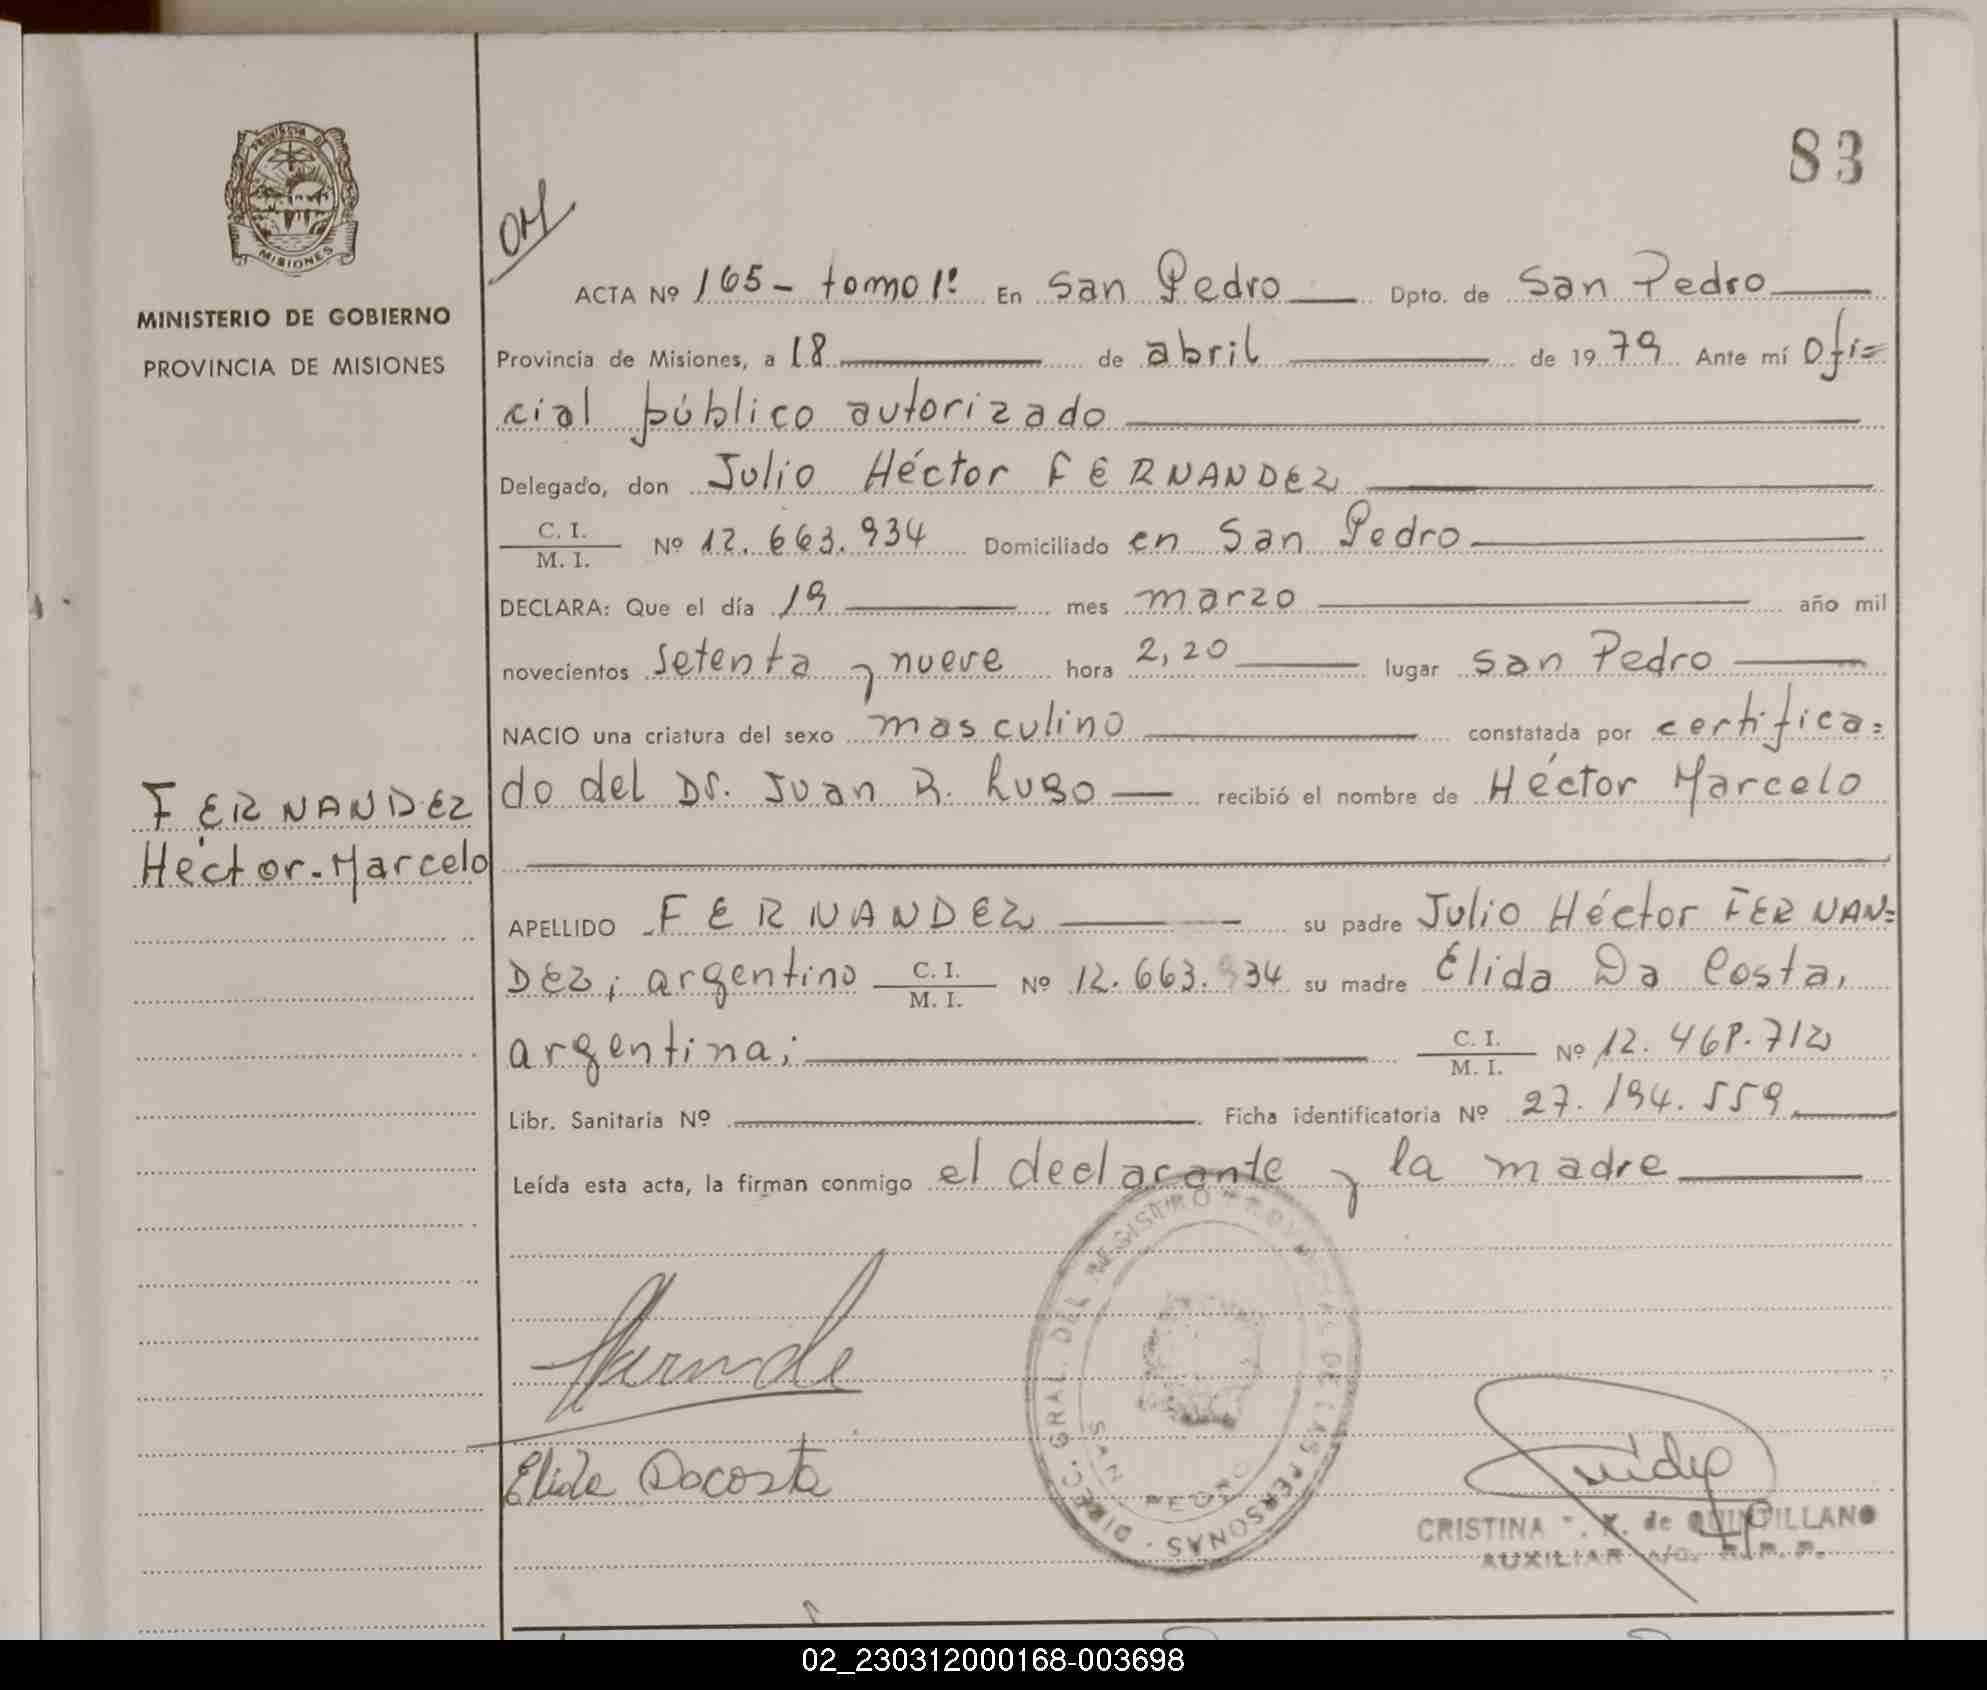 83
PROVINCIA DE
MISIONES
MINISTERIO DE GOBIERNO
PROVINCIA DE MISIONES
FERNANDEZ
Héctor-Marcelo
OM
ACTA Nº 165- tomo 1º En San Pedro Dpto. de San Pedro
Provincia de Misiones, a 18 de abril de 1979 Ante mí Ofi=
cial público autorizado
Delegado, don Julio Héctor FERNANDEZ
C. I.
M. I. Nº 12.663.934 Domiciliado en San Pedro
DECLARA: Que el día 19 mes marzo año mil
novecientos setenta y nueve hora 2,20 lugar San Pedro
NACIO una criatura del sexo masculino constatada por certifica=
do del Dr. Juan R. Lugo recibió el nombre de Héctor Marcelo
APELLIDO FERNANDEZ su padre Julio Héctor FERNAN=
DEZ; argentino C. I. M. I. Nº 12.663.934 su madre Élida Da Costa,
argentina; C. I. M. I. Nº 12.468.712
Libr. Sanitaria Nº Ficha identificatoria Nº 27.194.559
Leída esta acta, la firman conmigo el declarante y la madre
Elida Dacosta
DIREC. GRAL. DEL REGISTRO PROVINCIAL DE LAS PERSONAS
SAN PEDRO
CRISTINA K. de QUINTILLANO
AUXILIAR
02_230312000168-003698